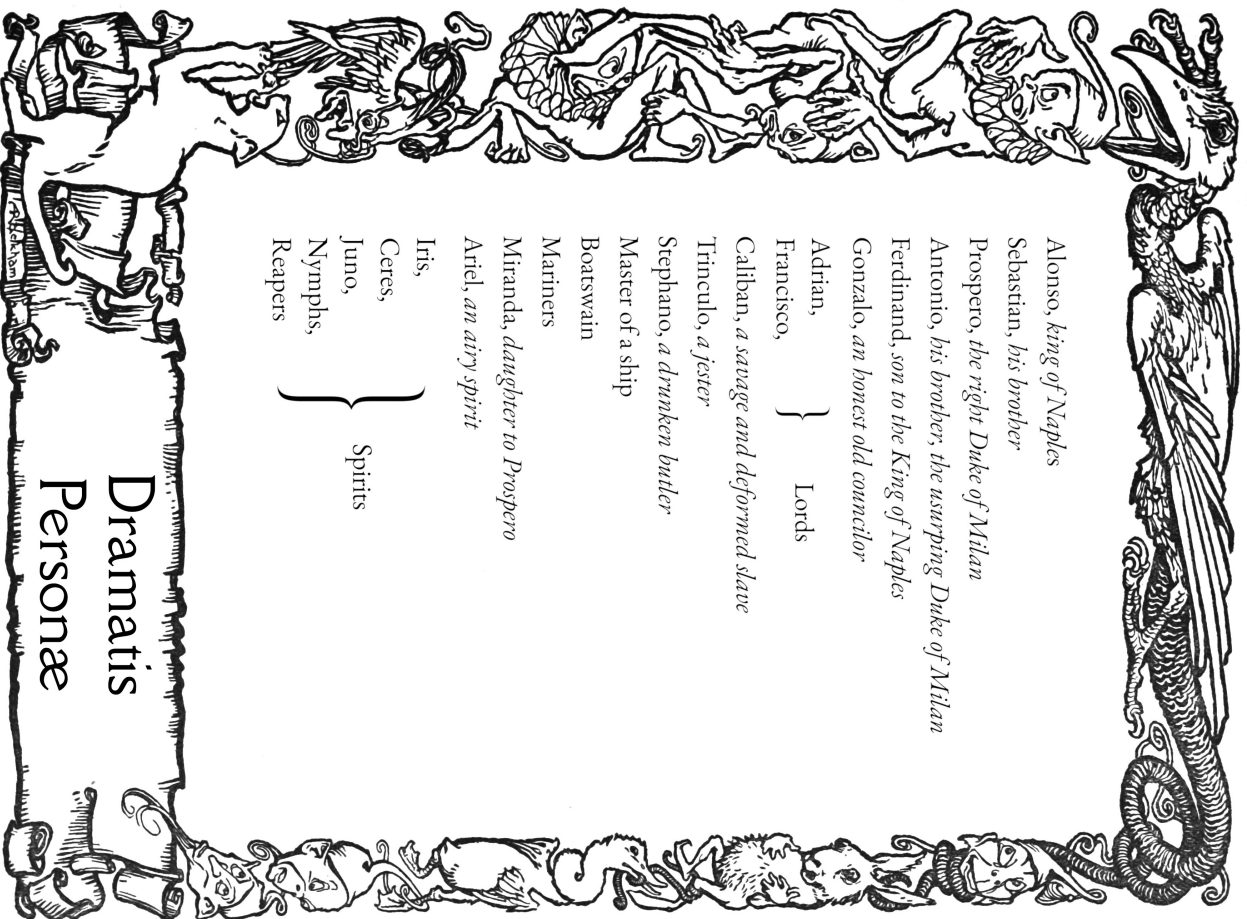 Alonso, king of Naples
Sebastian, his brother
Prospero, the right Duke of Milan
Antonio, his brother, the usurping Duke of Milan
Ferdinand, son to the King of Naples
Gonzalo, an honest old councilor
Adrian,
Francisco,
} Lords
Caliban, a savage and deformed slave
Trinculo, a jester
Stephano, a drunken butler
Master of a ship
Boatswain
Mariners
Miranda, daughter to Prospero
Ariel, an airy spirit
Iris,
Ceres,
Juno,
Nymphs,
Reapers
} Spirits
Dramatis
Personæ
ARackham